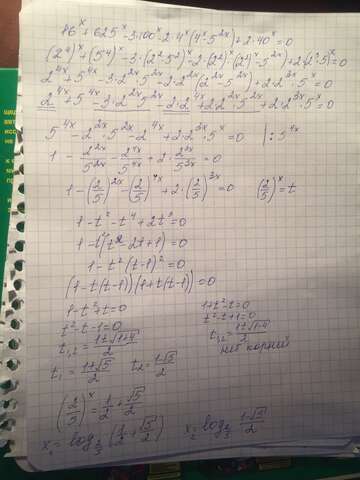 16^x + 625^x - 3·100^x - 2·4^x(4^x - 5^{2x}) + 2·40^x = 0
(2^4)^x + (5^4)^x - 3·(2^2·5^2)^x - 2·(2^2)^x((2^2)^x - 5^{2x}) + 2·(2^3·5)^x = 0
2^{4x} + 5^{4x} - 3·2^{2x}·5^{2x} - 2·2^{2x}(2^{2x} - 5^{2x}) + 2·2^{3x}·5^x = 0
2^{4x} + 5^{4x} - 3·2^{2x}5^{2x} - 2·2^{4x} + 2·2^{2x}·5^{2x} + 2·2^{3x}·5^x = 0
5^{4x} - 2^{2x}·5^{2x} - 2^{4x} + 2·2^{3x}·5^x = 0 |: 5^{4x}
1 - 2^{2x}/5^{2x} - 2^{4x}/5^{4x} + 2·2^{3x}/5^{3x} = 0
1 - (2/5)^{2x} - (2/5)^{4x} + 2·(2/5)^{3x} = 0 (2/5)^x = t
1 - t^2 - t^4 + 2t^3 = 0
1 - t^2(t^2 - 2t + 1) = 0
1 - t^2(t-1)^2 = 0
(1 - t(t-1))(1 + t(t-1)) = 0
1 - t^2 + t = 0 1 + t^2 - t = 0
t^2 - t - 1 = 0 t^2 - t + 1 = 0
t_{1,2} = (1±√(1+4))/2 t_{1,2} = (1±√(1-4))/2
t_1 = (1+√5)/2 t_2 = (1-√5)/2 нет корней
(2/5)^x = 1/2 + √5/2
x_1 = log_{2/5}(1/2 + √5/2) x_2 = log_{2/5} (1-√5)/2